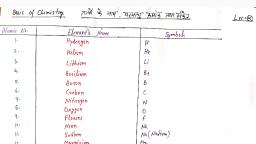 Basic of Chemistry तत्वों के नाम, परमाणु क्रमांक
Atomic No. Element's Name Symbols
1. Hydrogen H
2. Helium He
3. Lithium Li
4. Berilium Be
5. Boron B
6. Carbon C
7. Nitrogen N
8. Oxygen O
9. F
10. Neon Ne
11. Sodium Na (Natrium)